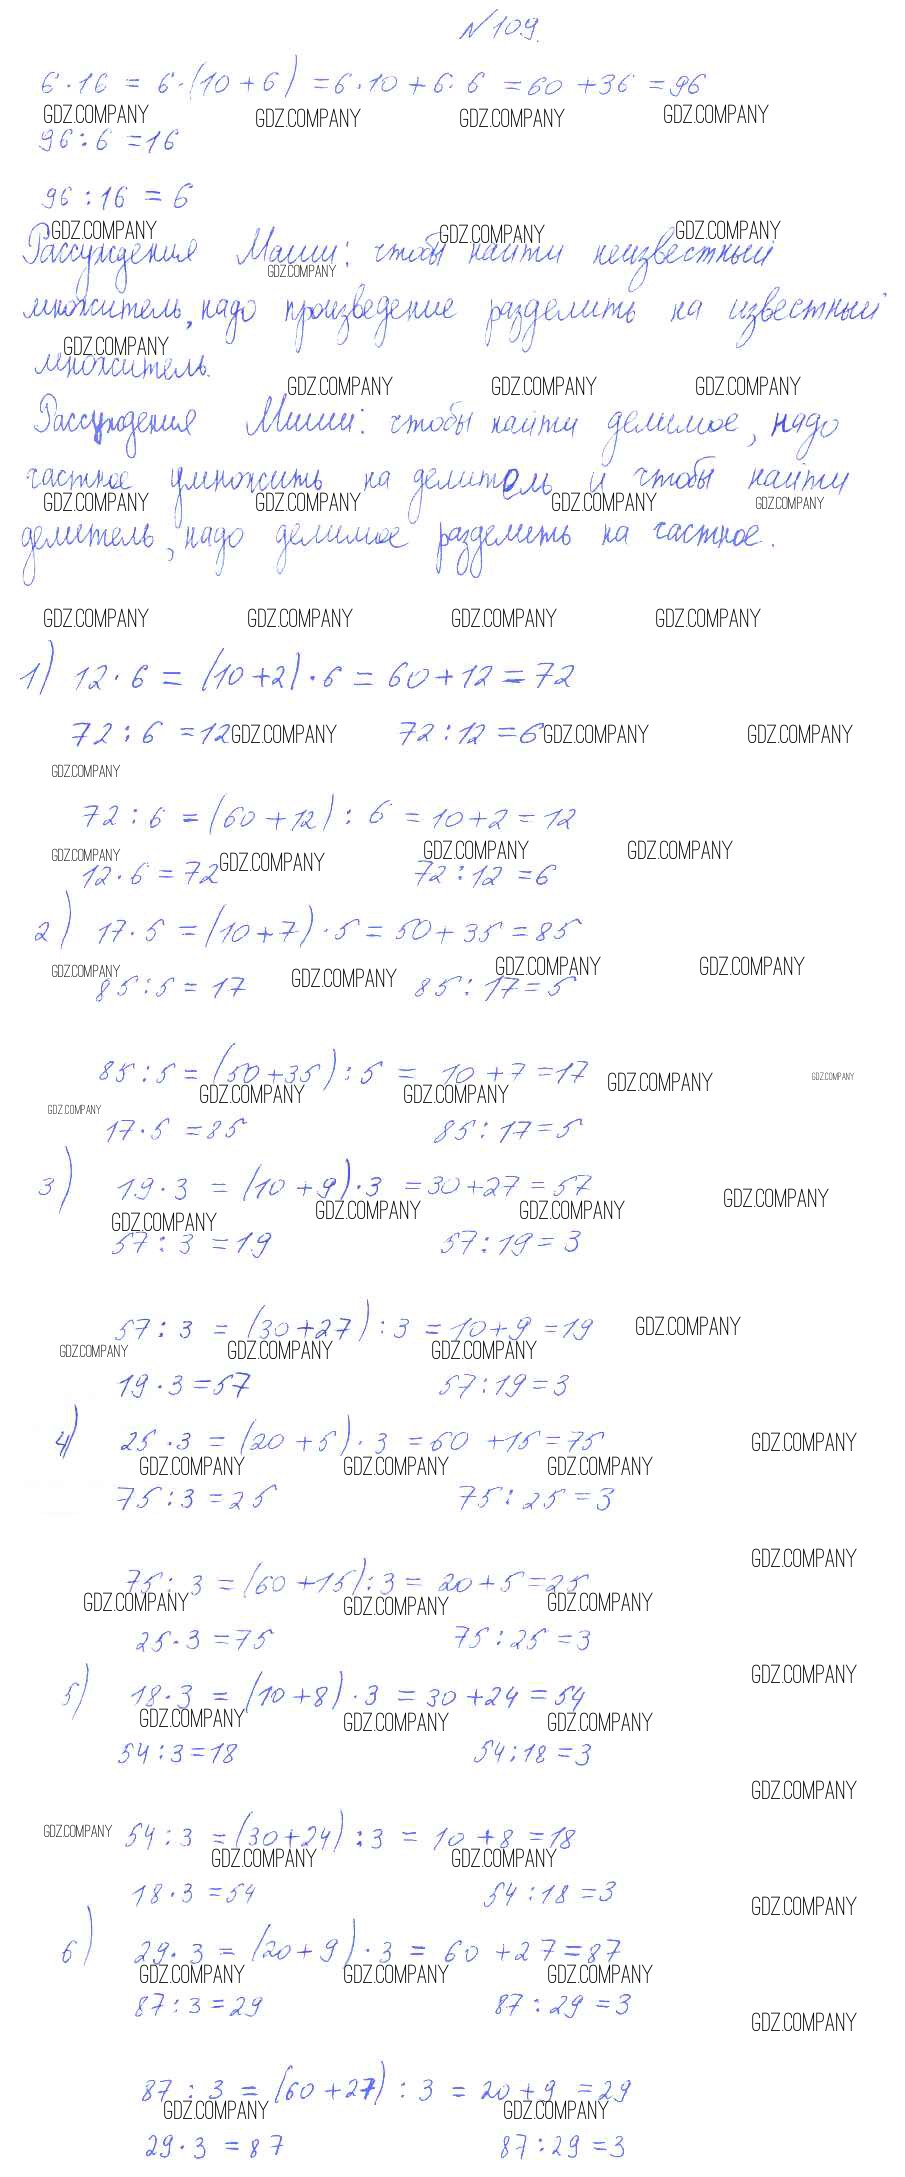 №109.
6·16 = 6·(10+6) = 6·10+6·6 = 60+36 = 96
GDZ.COMPANY GDZ.COMPANY GDZ.COMPANY GDZ.COMPANY
96:6 = 16
96:16 = 6
GDZ.COMPANY GDZ.COMPANY GDZ.COMPANY
Рассуждения Маши: чтобы найти неизвестный
GDZ.COMPANY
множитель, надо произведение разделить на известный
GDZ.COMPANY
множитель.
GDZ.COMPANY GDZ.COMPANY GDZ.COMPANY
Рассуждения Миши: чтобы найти делимое, надо
частное умножить на делитель и чтобы найти
GDZ.COMPANY GDZ.COMPANY GDZ.COMPANY GDZ.COMPANY
делитель, надо делимое разделить на частное.
GDZ.COMPANY GDZ.COMPANY GDZ.COMPANY GDZ.COMPANY
1) 12·6 = (10+2)·6 = 60+12 = 72
72:6 = 12 GDZ.COMPANY 72:12 = 6 GDZ.COMPANY GDZ.COMPANY
GDZ.COMPANY
72:6 = (60+12):6 = 10+2 = 12
GDZ.COMPANY GDZ.COMPANY GDZ.COMPANY GDZ.COMPANY
12·6 = 72 72:12 = 6
2) 17·5 = (10+7)·5 = 50+35 = 85
GDZ.COMPANY GDZ.COMPANY GDZ.COMPANY GDZ.COMPANY
85:5 = 17 85:17 = 5
85:5 = (50+35):5 = 10+7 = 17
GDZ.COMPANY GDZ.COMPANY GDZ.COMPANY GDZ.COMPANY
GDZ.COMPANY
17·5 = 85 85:17 = 5
3) 19·3 = (10+9)·3 = 30+27 = 57
GDZ.COMPANY GDZ.COMPANY GDZ.COMPANY GDZ.COMPANY
57:3 = 19 57:19 = 3
57:3 = (30+27):3 = 10+9 = 19 GDZ.COMPANY
GDZ.COMPANY GDZ.COMPANY GDZ.COMPANY
19·3 = 57 57:19 = 3
4) 25·3 = (20+5)·3 = 60+15 = 75 GDZ.COMPANY
GDZ.COMPANY GDZ.COMPANY GDZ.COMPANY
75:3 = 25 75:25 = 3
GDZ.COMPANY
75:3 = (60+15):3 = 20+5 = 25
GDZ.COMPANY GDZ.COMPANY GDZ.COMPANY
25·3 = 75 75:25 = 3
GDZ.COMPANY
5) 18·3 = (10+8)·3 = 30+24 = 54
GDZ.COMPANY GDZ.COMPANY GDZ.COMPANY
54:3 = 18 54:18 = 3
GDZ.COMPANY
GDZ.COMPANY 54:3 = (30+24):3 = 10+8 = 18
GDZ.COMPANY GDZ.COMPANY
18·3 = 54 54:18 = 3
GDZ.COMPANY
6) 29·3 = (20+9)·3 = 60+27 = 87
GDZ.COMPANY GDZ.COMPANY GDZ.COMPANY
87:3 = 29 87:29 = 3
GDZ.COMPANY
87:3 = (60+27):3 = 20+9 = 29
GDZ.COMPANY GDZ.COMPANY
29·3 = 87 87:29 = 3